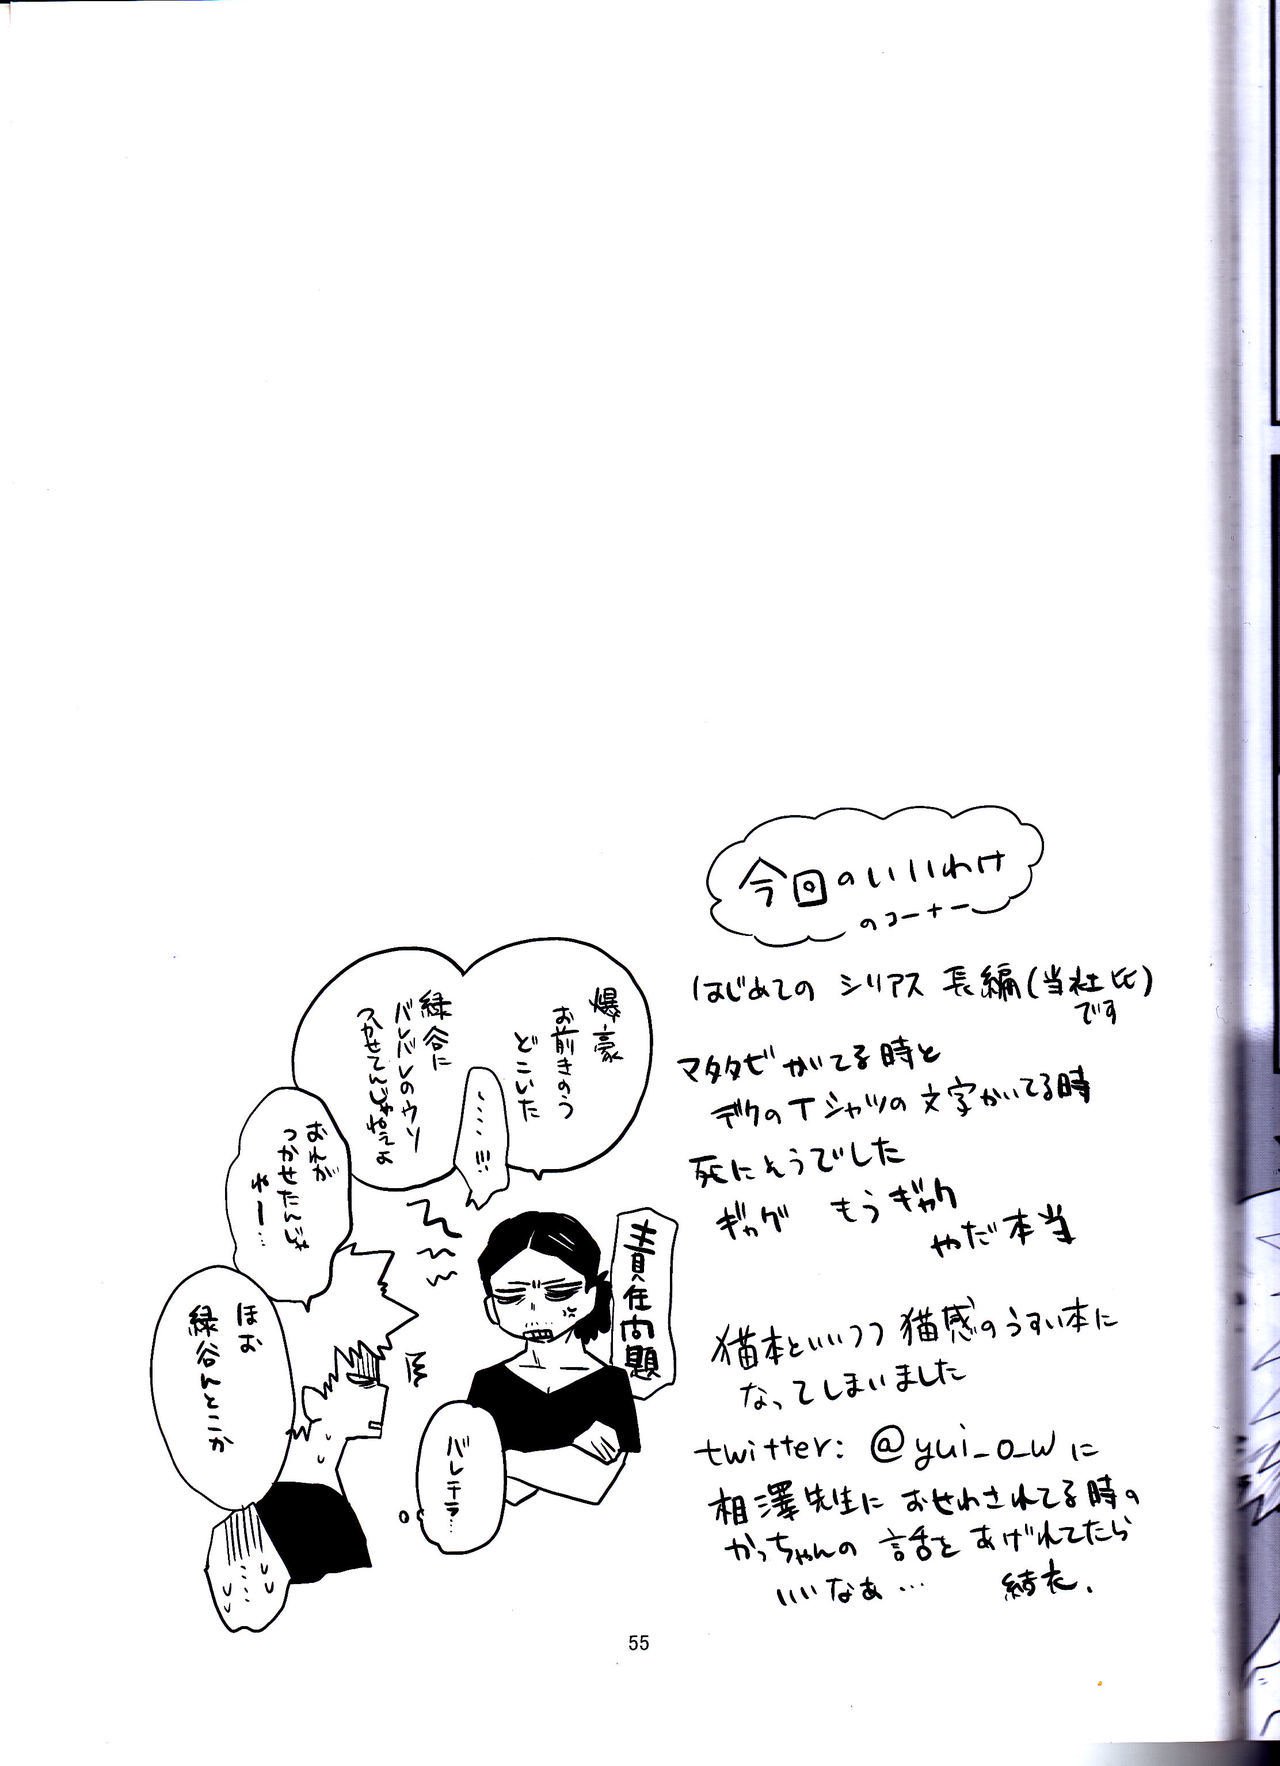 今回のいいわけ
のコーナー
はじめての シリアス 長編(当社比)
です
マタタビ がてる時と
デクのTシャツの文字かいてる時
死にそうでした
ギャグ もうギャグ
やだ本当
猫本といいつつ 猫感のうすい本に
なってしまいました
twitter: @yui_o_wに
相澤先生に おせわされてる時の
かっちゃんの 話を あげれてたら
いいなぁ… 結衣.
爆豪
お前きのう
どこいた
……!!!
緑谷に
バレバレのウソ
つかせてんじゃねぇよ
おれが
つかせたんじゃ
ねー…
責任問題
ほお
緑谷んとこか
バレテラ…
…
55